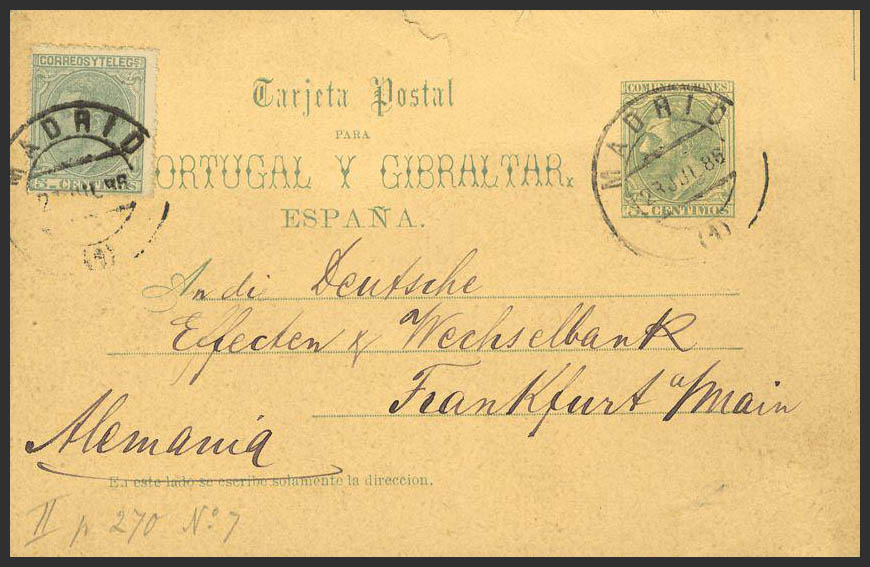 CORREOS Y TELEGS
5 CENTIMOS
MADRID
(1)
Tarjeta Postal
PARA
PORTUGAL Y GIBRALTAR.
ESPAÑA.
COMUNICACIONES
5 CENTIMOS
MADRID
23 JUL 86
(1)
An di Deutsche
Effecten & Wechselbank
Frankfurt a/Main
Alemania
En este lado se escribe solamente la direccion.
II p 270 Nº 7